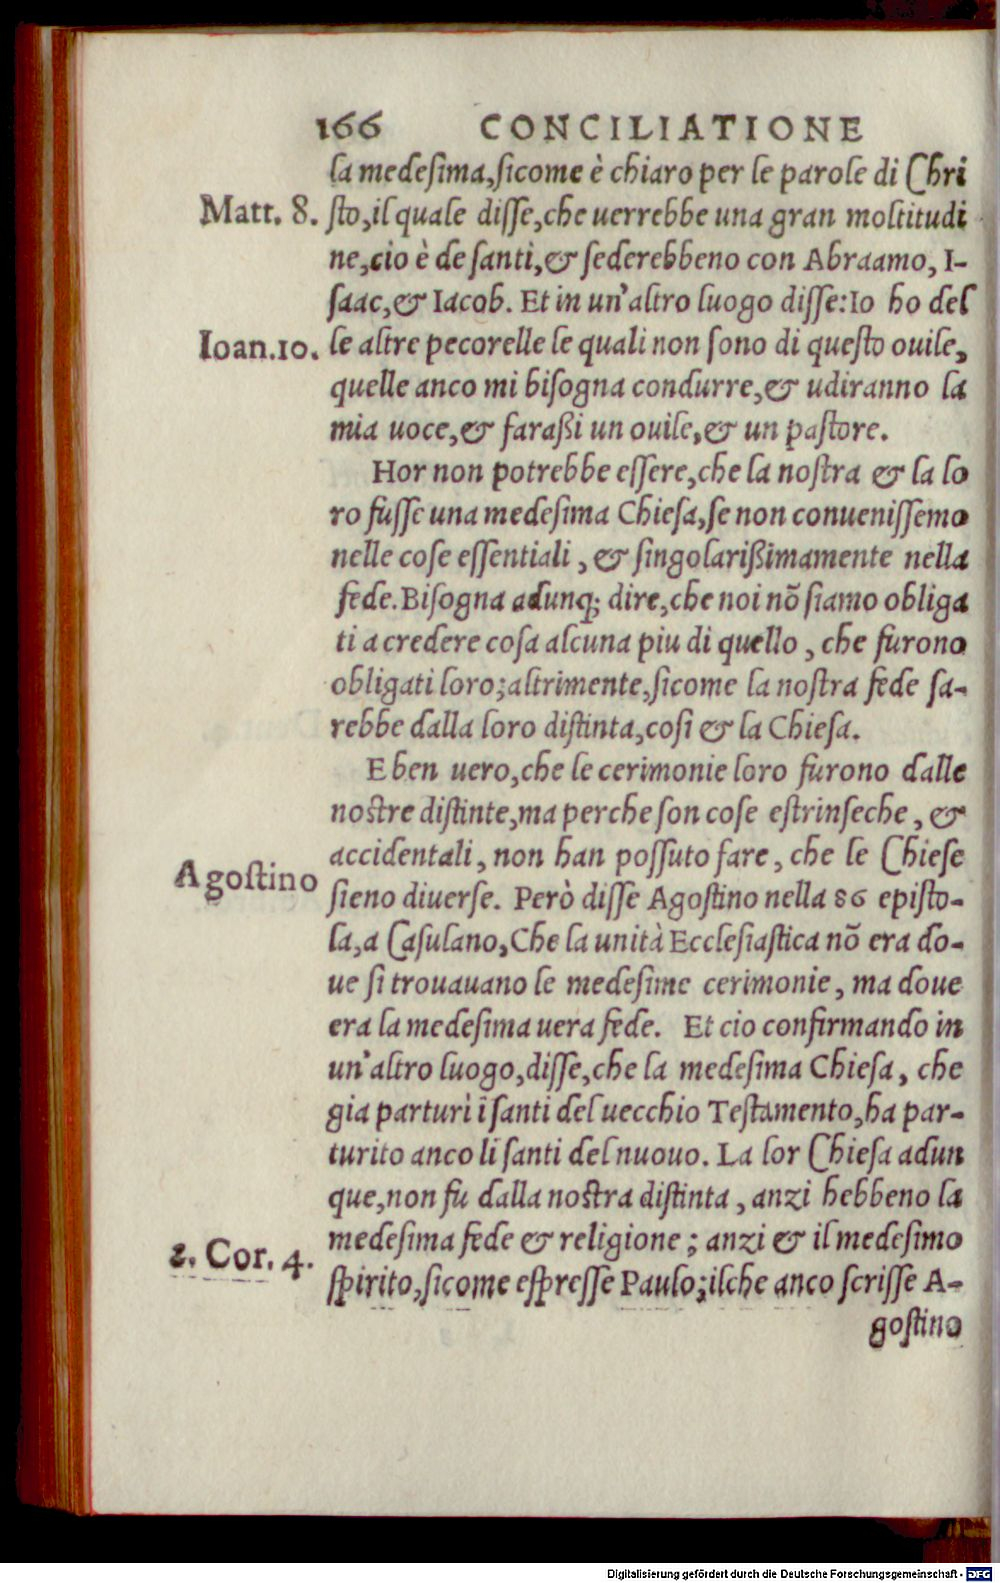 166 CONCILIATIONE
la medesima, ſicome è chiaro per le parole di Chri
Matt. 8. ſto, il quale diſſe, che uerrebbe una gran moltitudi
ne, cio è de ſanti, & ſederebbeno con Abraamo, I-
ſaac, & Iacob. Et in un'altro luogo diſſe: Io ho del
Ioan. 10. le altre pecorelle le quali non ſono di queſto ouile,
quelle anco mi biſogna condurre, & udiranno la
mia uoce, & faraßi un ouile, & un paſtore.
Hor non potrebbe eſſere, che la noſtra & la lo
ro fuſſe una medeſima Chieſa, ſe non conueniſſemo
nelle coſe eſſentiali, & ſingolarißimamente nella
fede. Biſogna adunq; dire, che noi nõ ſiamo obliga
ti a credere coſa alcuna piu di quello, che furono
obligati loro; altrimente, ſicome la noſtra fede ſa-
rebbe dalla loro diſtinta, coſi & la Chieſa.
E ben uero, che le cerimonie loro furono dalle
noſtre diſtinte, ma perche ſon coſe eſtrinſeche, &
accidentali, non han poſſuto fare, che le Chieſe
Agoſtino ſieno diuerſe. Però diſſe Agoſtino nella 86 epiſto-
la, a Caſulano, Che la unità Eccleſiaſtica nõ era do-
ue ſi trouauano le medeſime cerimonie, ma doue
era la medeſima uera fede. Et cio confirmando in
un'altro luogo, diſſe, che la medeſima Chieſa, che
gia parturì i ſanti del uecchio Teſtamento, ha par-
turito anco li ſanti del nuouo. La lor Chieſa adun
que, non fu dalla noſtra diſtinta, anzi hebbeno la
medeſima fede & religione; anzi & il medeſimo
2. Cor. 4. ſpirito, ſicome eſpreſſe Paulo; ilche anco ſcriſſe A-
goſtino
Digitalisierung gefördert durch die Deutsche Forschungsgemeinschaft - DFG